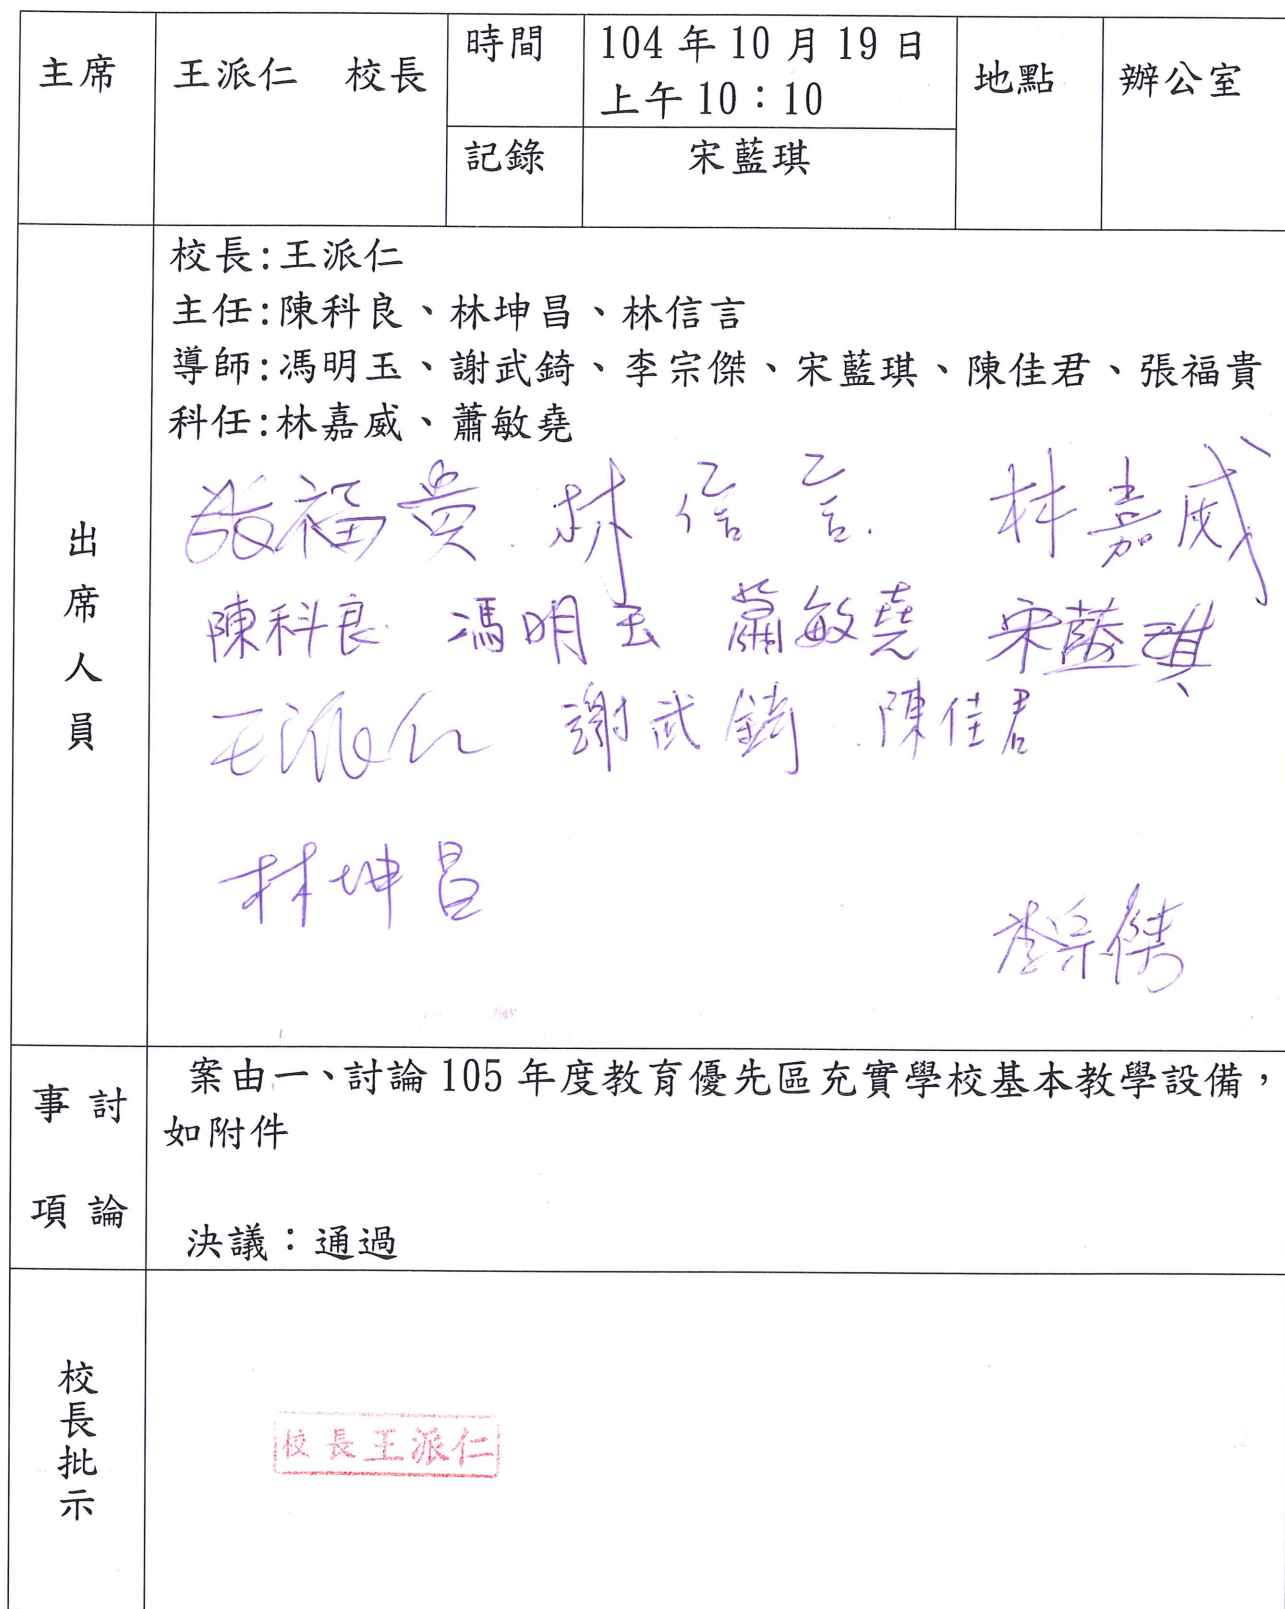 主席
王派仁 校長
時間
104年10月19日
上午10：10
地點
辦公室
記錄
宋藍琪
出席人員
校長:王派仁
主任:陳科良、林坤昌、林信言
導師:馮明玉、謝武錡、李宗傑、宋藍琪、陳佳君、張福貴
科任:林嘉威、蕭敏堯
張福貴 林信言 林嘉威
陳科良 馮明玉 蕭敏堯 宋藍琪
王派仁 謝武錡 陳佳君
林坤昌
李宗傑
事討
項論
案由一、討論105年度教育優先區充實學校基本教學設備，
如附件
決議：通過
校長批示
校長王派仁